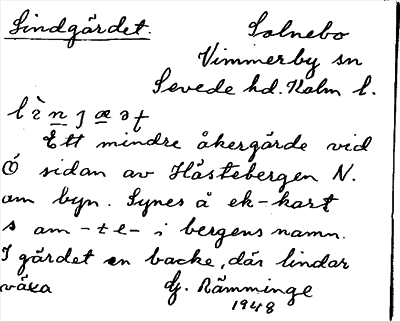 Lindgärdet.
Solnebo
Vimmerby sn
Sevede hd. Kalm l.
Ett mindre åkergärde vid
Ö sidan av Hästebergen N.
om byn. Synes å ek-kart
s am -te- i bergens namn.
I gärdet en backe, där lindar
växa
Gj. Rämminge
1948